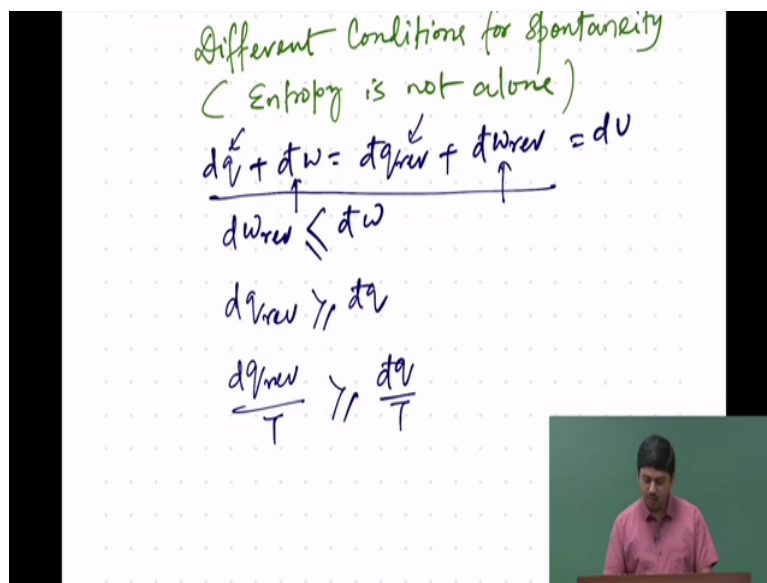 Different Conditions for Spontaneity
( Entropy is not alone )
đq + đw = đqrev + đwrev = dU
dwrev ⩽ đw
dqrev ⩾ đq
dqrev/T ⩾ đq/T